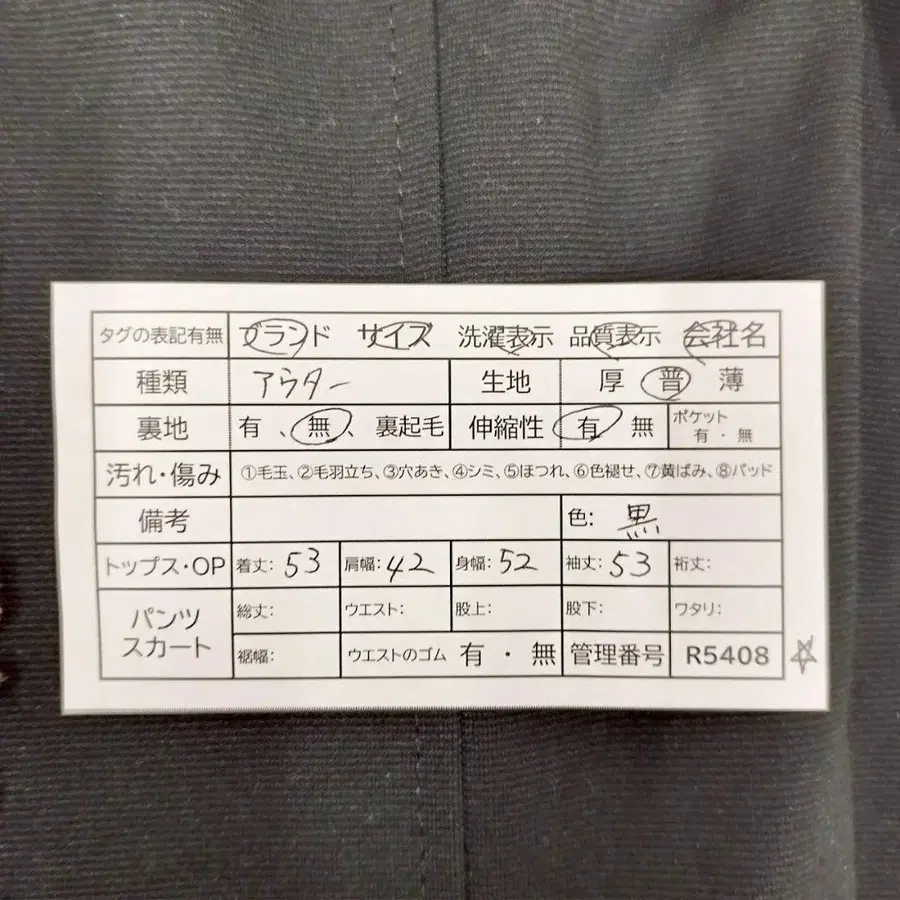 タグの表記有無 ブランド サイズ 洗濯表示 品質表示 会社名
種類 アウター 生地 厚 普 薄
裏地 有、無、裏起毛 伸縮性 有 無 ポケット 有・無
汚れ・傷み ①毛玉、②毛羽立ち、③穴あき、④シミ、⑤ほつれ、⑥色褪せ、⑦黄ばみ、⑧パッド
備考 色: 黒
トップス・OP 着丈: 53 肩幅: 42 身幅: 52 袖丈: 53 裄丈:
パンツ スカート 総丈: ウエスト: 股上: 股下: ワタリ:
裾幅: ウエストのゴム 有・無 管理番号 R5408